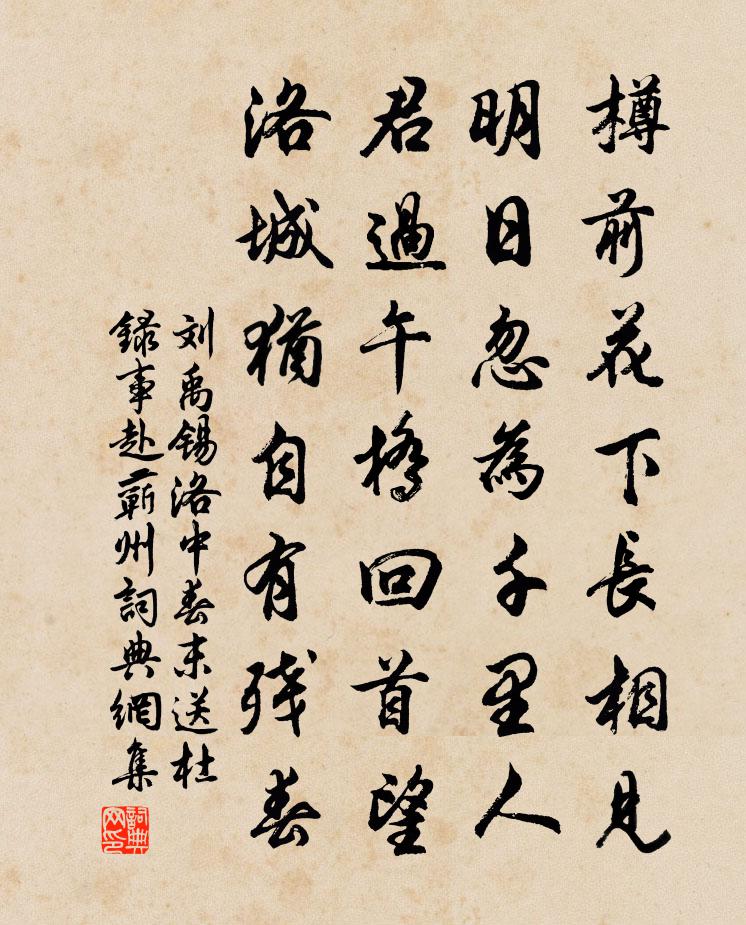 樽前花下長相見
明日忽為千里人
君過午橋回首望
洛城猶自有残春
刘禹锡洛中春末送杜
録事赴蕲州詞典網集
詞典网印